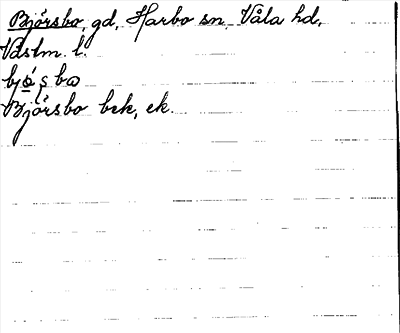 Björsbo, gd, Harbo sn, Våla hd,
Västm. l.
bjǿʂbω
Björsbo bek, ek.